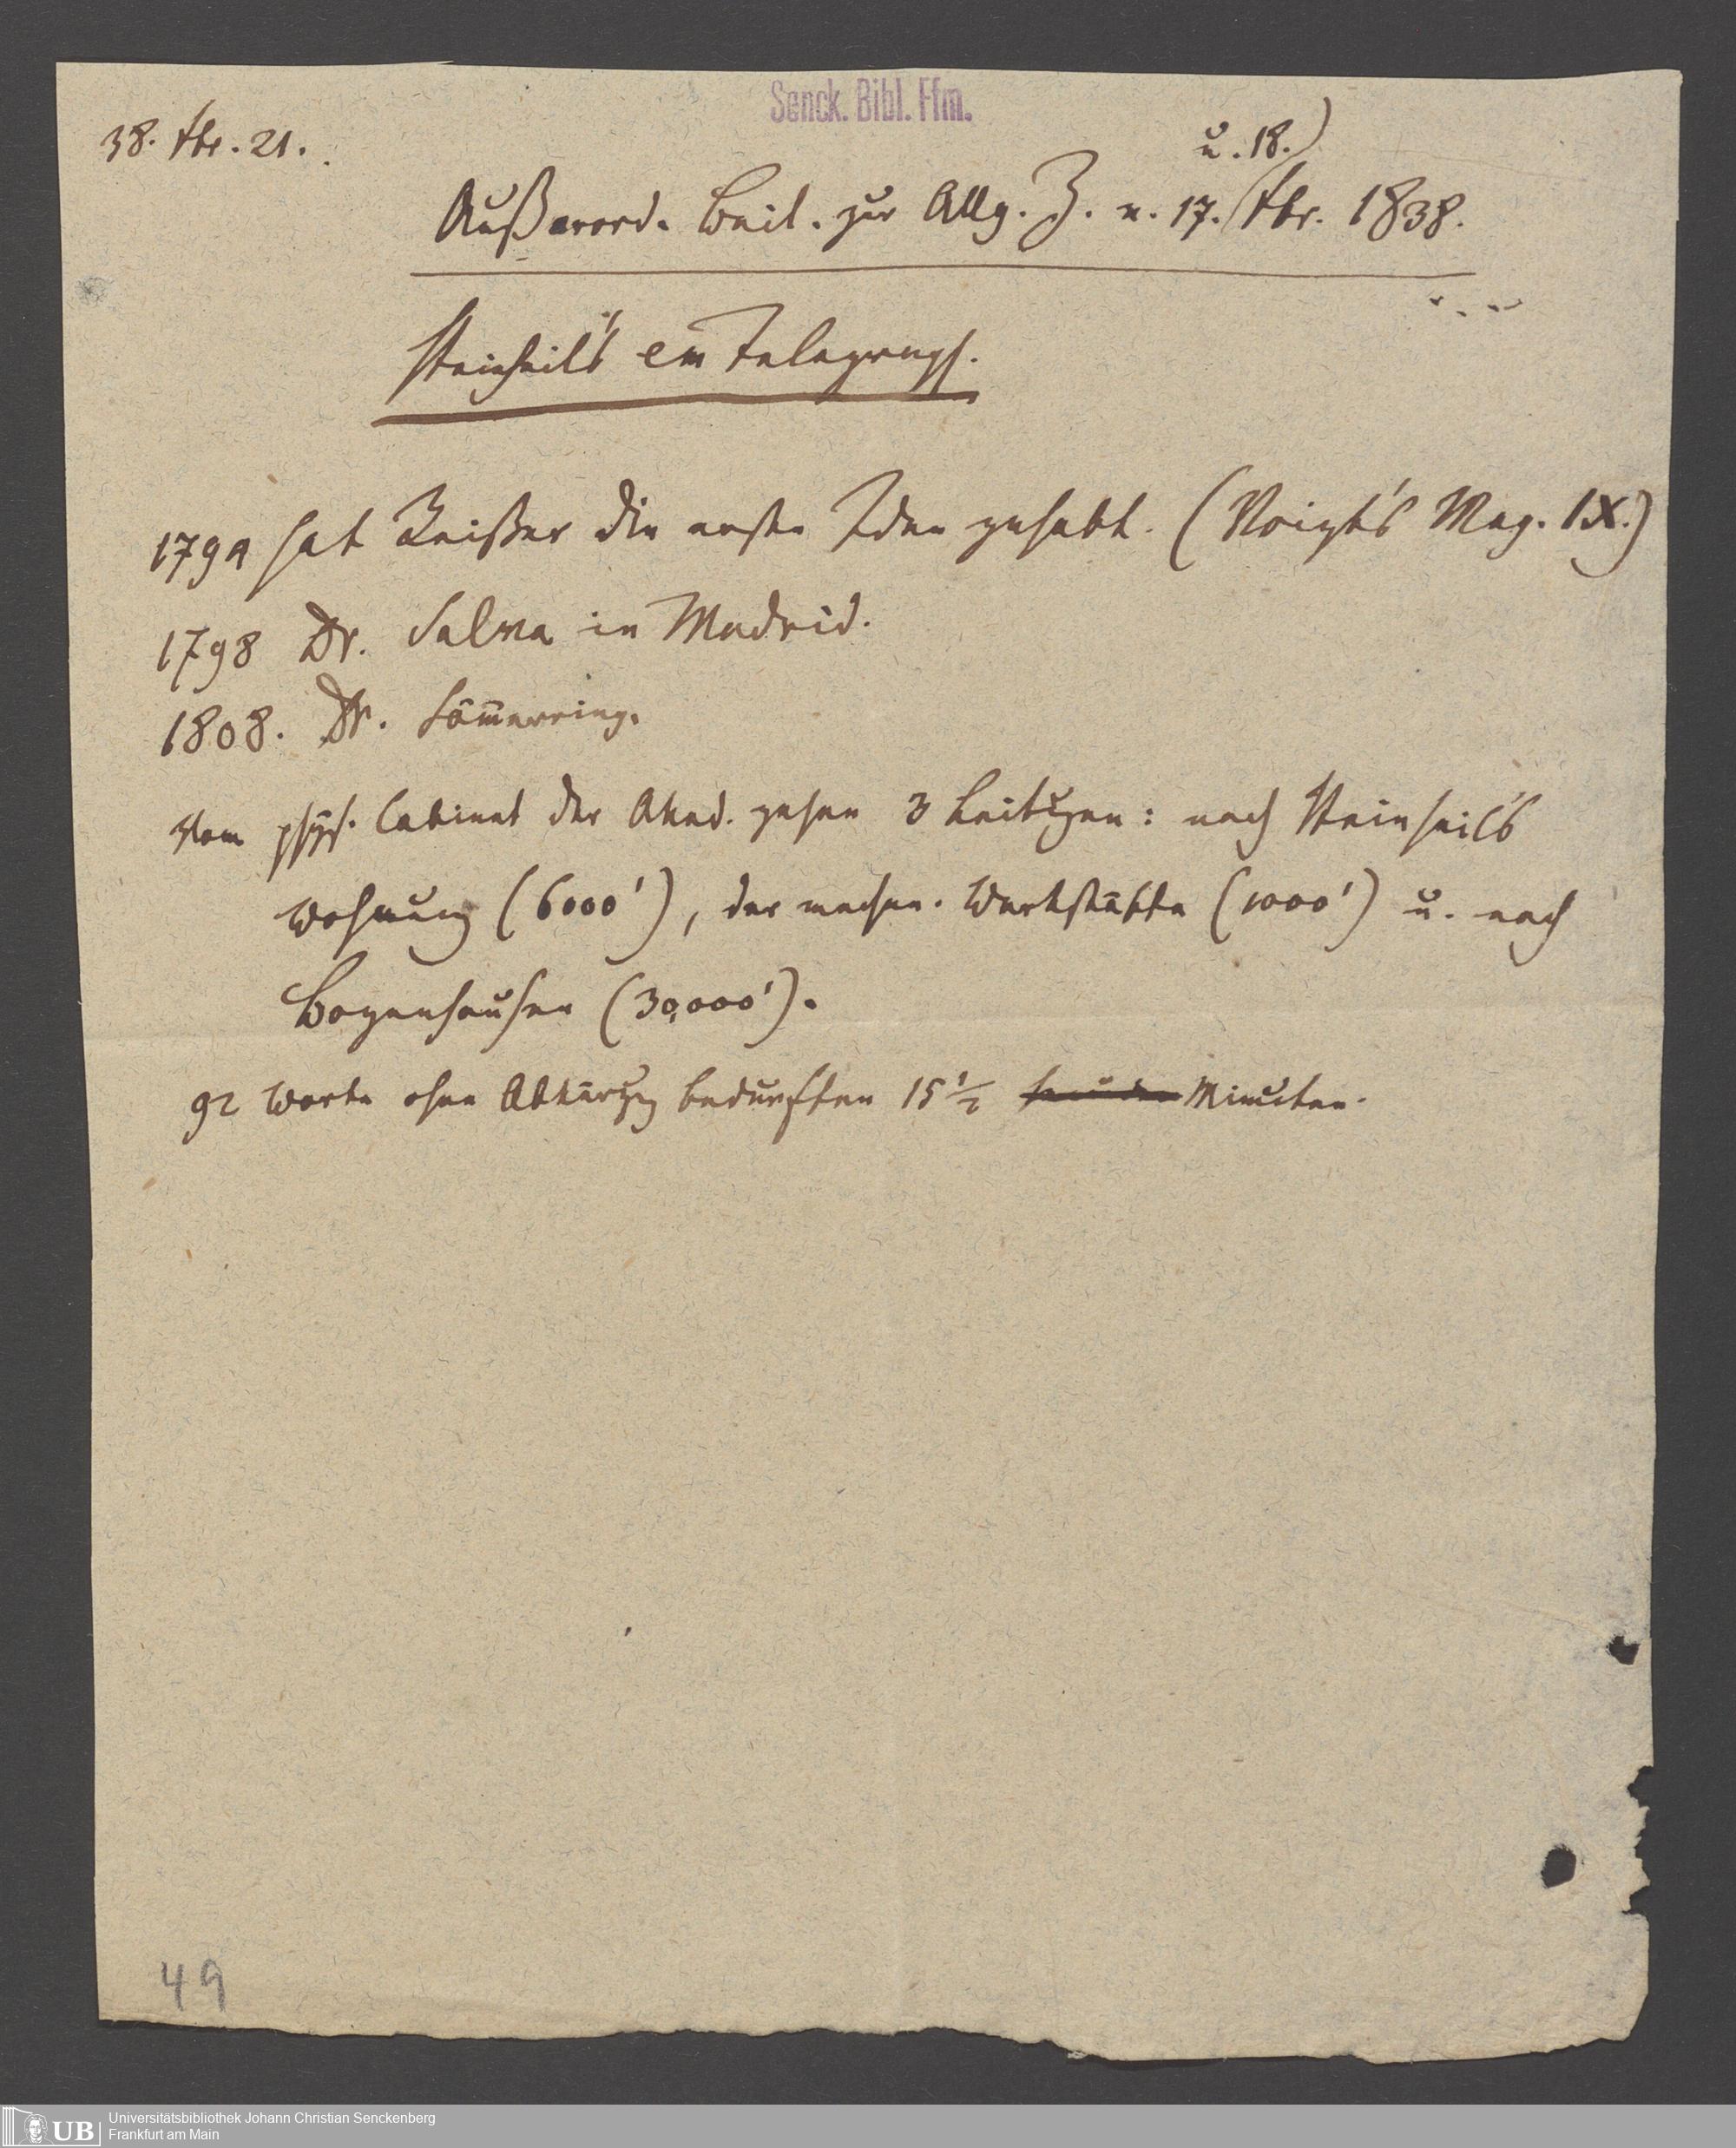 Senck. Bibl. Ffm.
38. Xbr. 21.
u. 18.)
Außerord. Beil. zur Allg. Z. v. 17. (Xbr. 1838.
Steinheil's em Telegraph.
1794 hat Reißer die erste Idee gehabt. (Voigt's Mag. IX.)
1798 Dr. Salva in Madrid.
1808. Dr. Sömerring.
Vom phys. Cabinet der Akad. gehen 3 Leitugen: nach Steinheil's
Wohnung (6000'), der mechan. Werkstätte (1000') u. nach
Bogenhausen (30,000').
92 Worte ohne Abkürzug bedurften 15 1/2 Secunden Minuten.
49
UB
Universitätsbibliothek Johann Christian Senckenberg
Frankfurt am Main